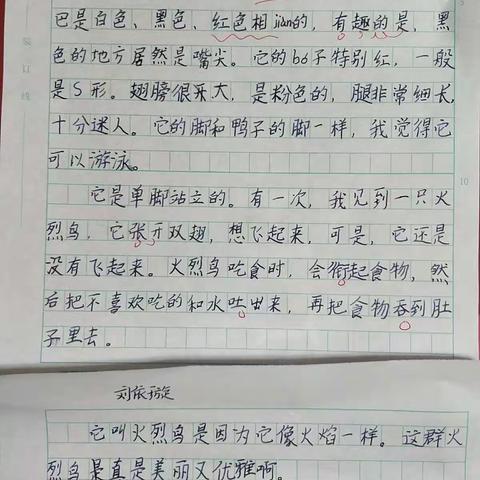 巴是白色、黑色、红色相jiàn的,有趣的是,黑
色的地方居然是嘴尖。它的bó子特别红,一般
是S形。翅膀很大,是粉色的,腿非常细长,
十分迷人。它的脚和鸭子的脚一样,我觉得它
可以游泳。
它是单脚站立的。有一次,我见到一只火
烈鸟,它张开双翅,想飞起来,可是,它还是
没有飞起来。火烈鸟吃食时,会衔起食物,然
后把不喜欢吃的和水吐出来,再把食物吞到肚
子里去。
刘依璇
它叫火烈鸟是因为它像火焰一样。这群火
烈鸟是真是美丽又优雅啊。
装订线
10